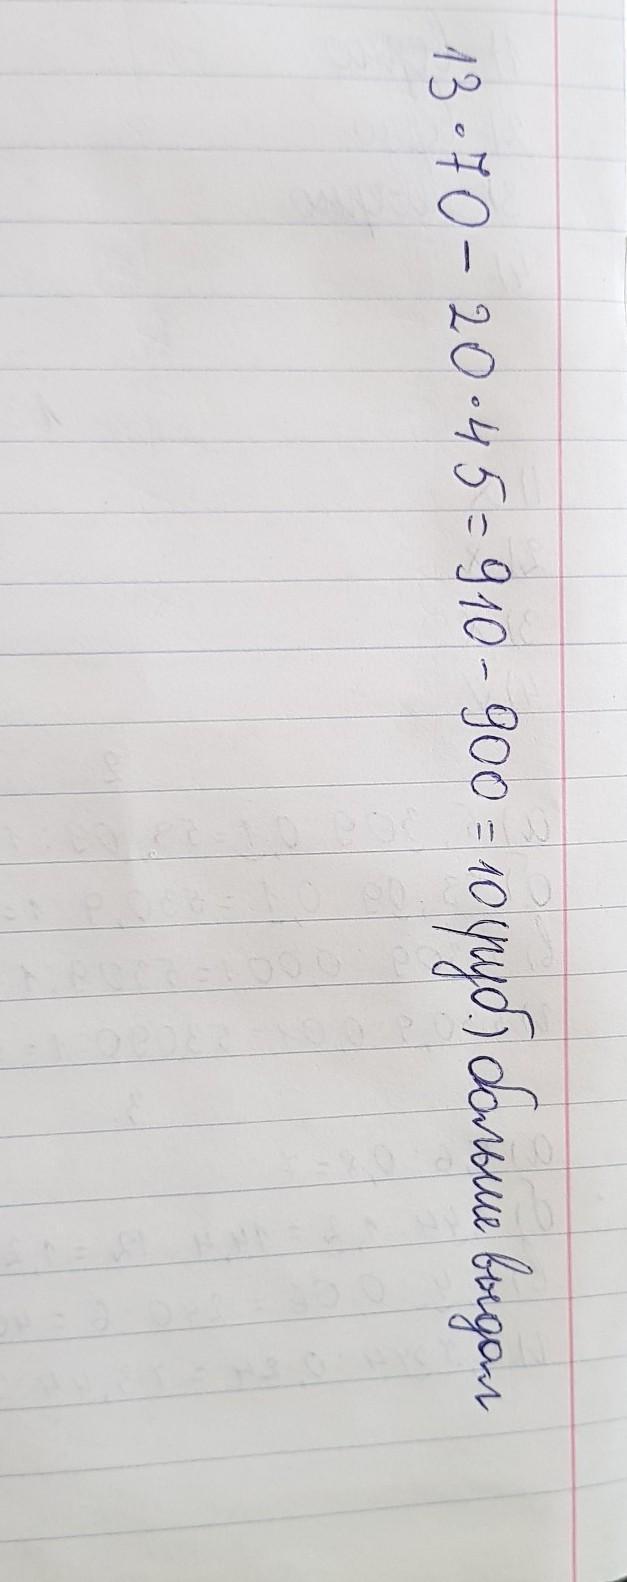 13·70-20·45=910-900=10(руб.) больше выдал